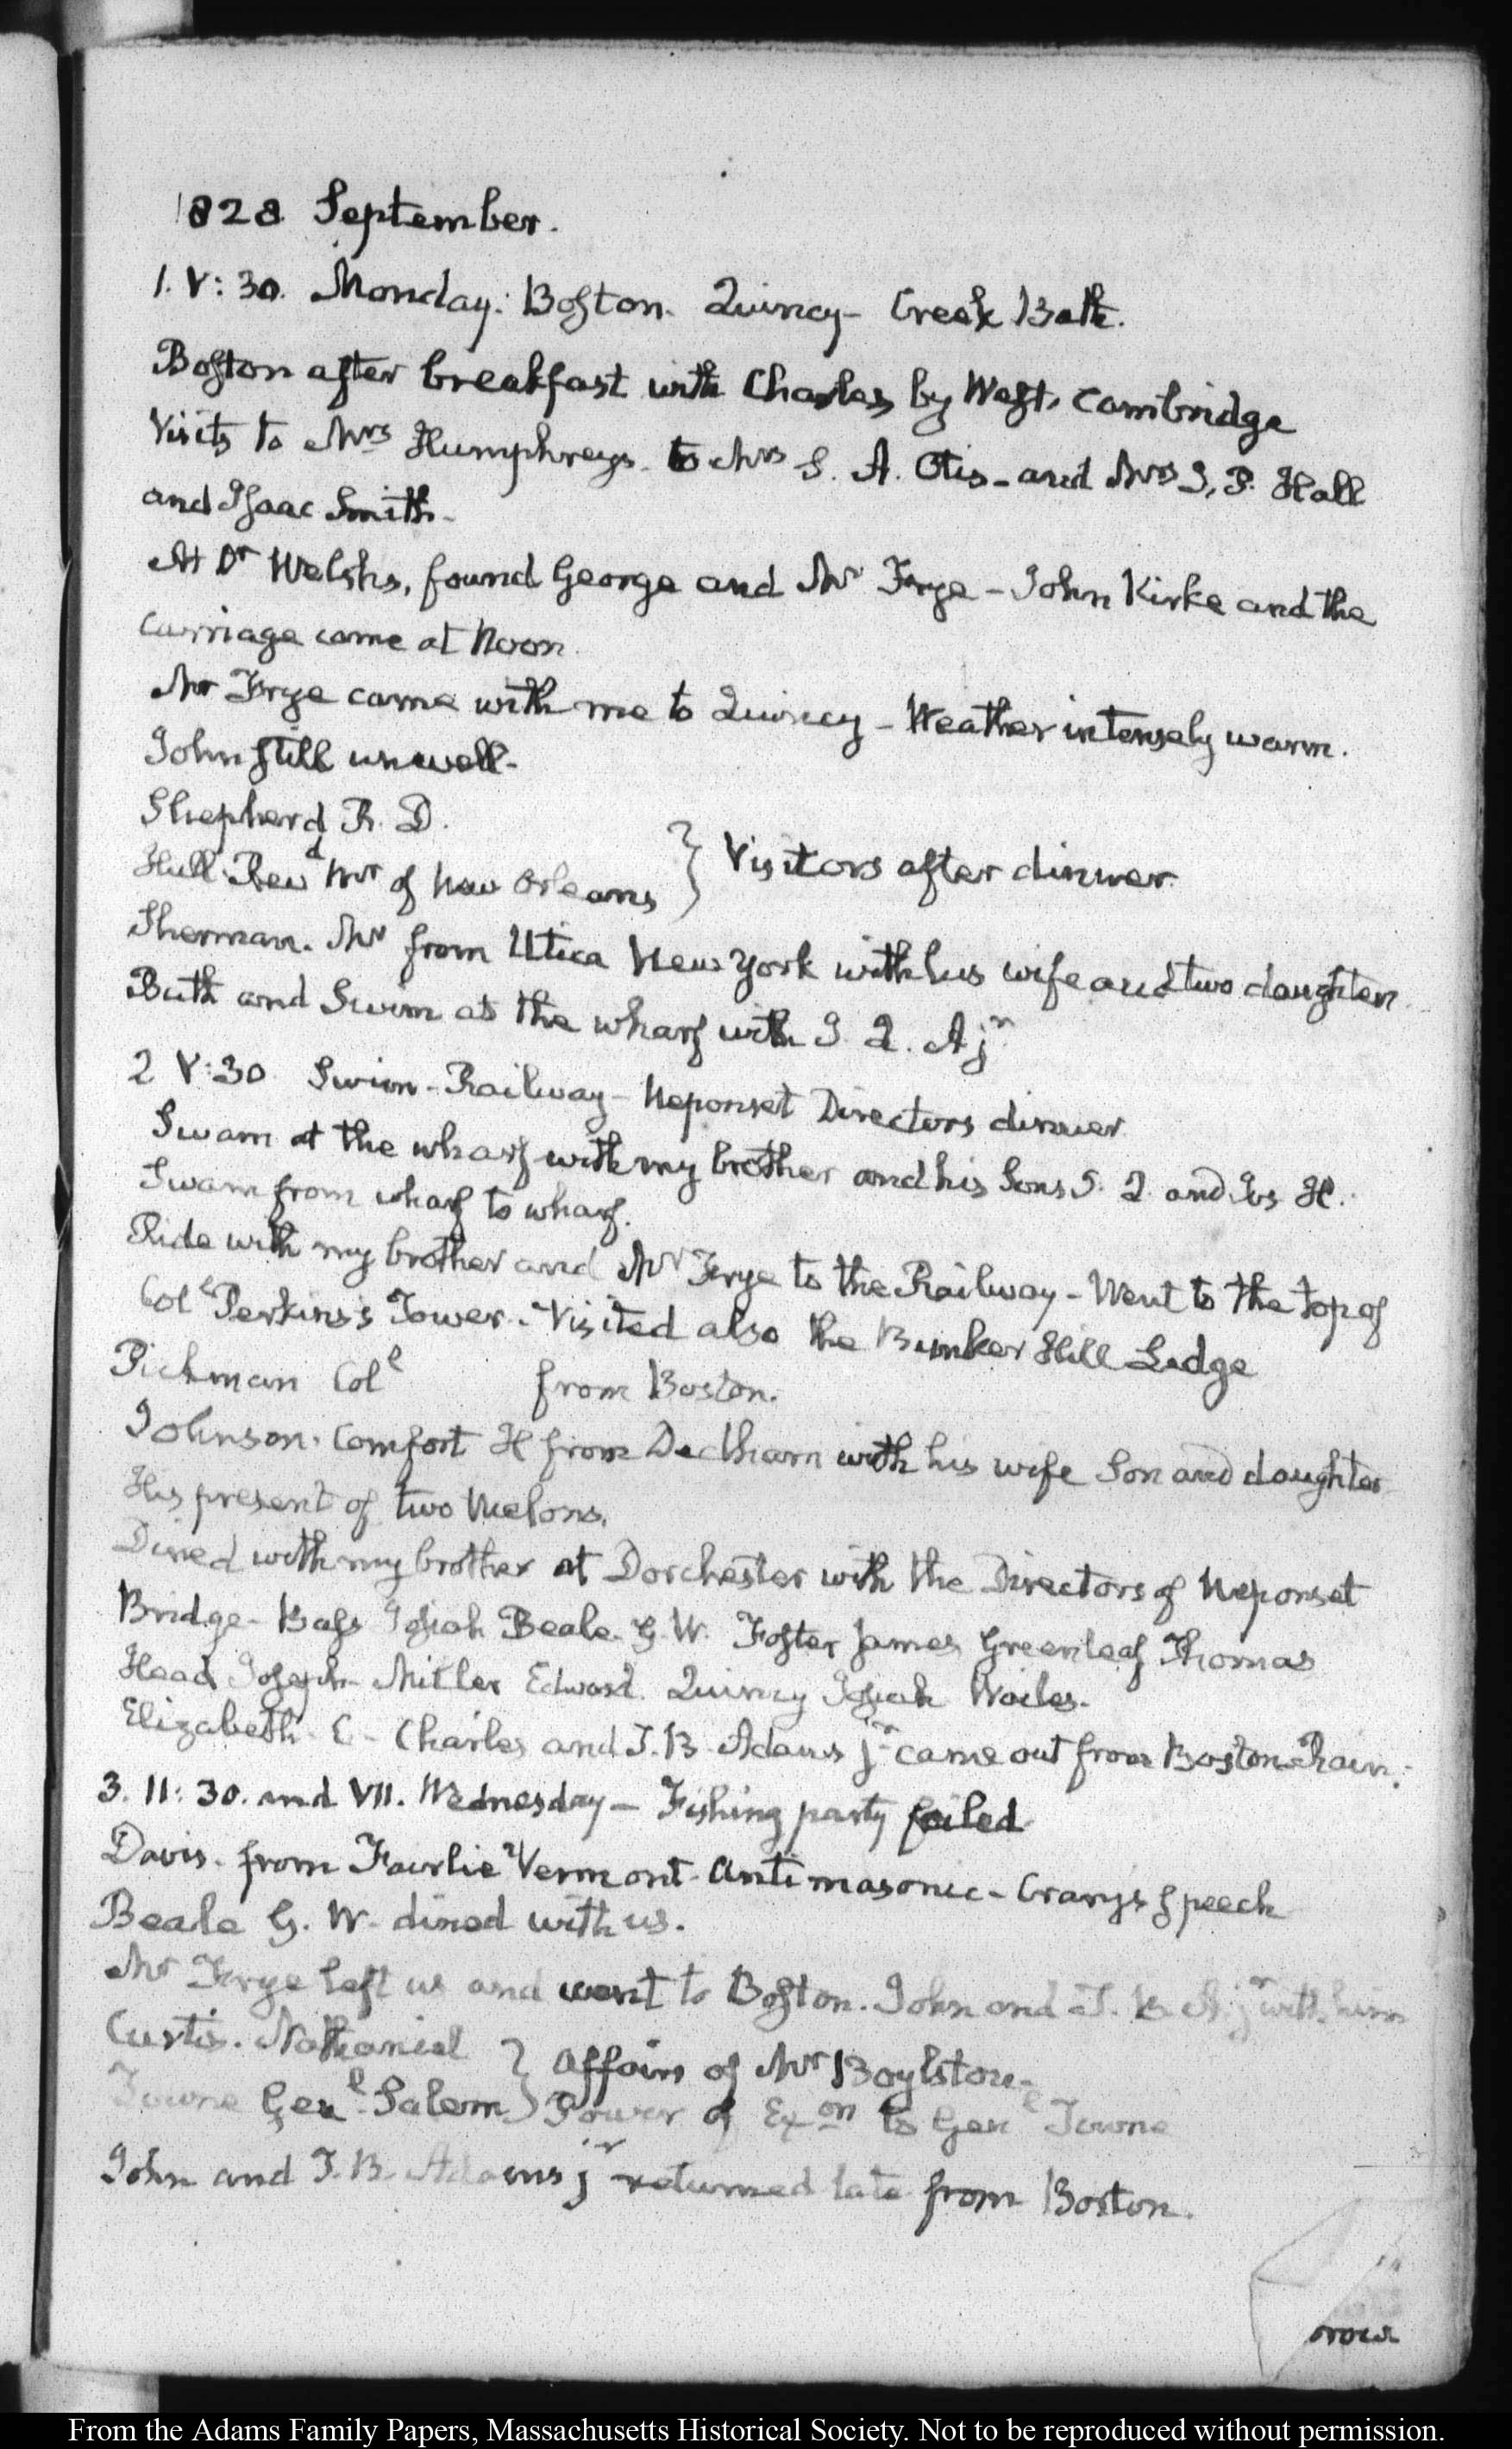 1828 September.
1. V:30. Monday. Boston. Quincy - Creek Bath.
Boston after breakfast with Charles by West Cambridge
Visits to Mrs Humphreys. to Mrs S. A. Otis - and Mrs J. P. Hall
and Isaac Smith -
At Dr Welshs, found George and Mr Frye - John Kirke and the
carriage came at Noon.
Mr Frye came with me to Quincy - Weather intensely warm.
John still unwell -
Shepherd R. D.
Hull. Revd Mr of New Orleans } Visitors after dinner.
Sherman. Mr from Utica New York with his wife and two daughters
Bath and Swim at the wharf with J. Q. A jr
2 V:30 Swim - Railway - Neponset Directors dinner.
Swam at the wharf with my brother and his Sons J. Q. and Jos. H.
Swam from wharf to wharf.
Ride with my brother and Mr Frye to the Railway - Went to the top of
Coll Perkins's Tower. Visited also the Bunker Hill Ledge
Pickman Coll from Boston.
Johnson. Comfort H from Dedham with his wife Son and daughter
His present of two Melons.
Dined with my brother at Dorchester with the Directors of Neponset
Bridge - Bass Josiah Beale. G. W. Foster James Greenleaf Thomas
Head Joseph - Miller Edward. Quincy Josiah
Elizabeth. C - Charles and T. B. Adams jr came out from Boston Rain.
3. II:30. and VII. Wednesday - Fishing party failed
Davis. from Fairlie Vermont. Antimasonic - Crarys Speech
Beale G. W. dined with us.
Mr Frye left us and went to Boston. John and T. B. A. jr with him
Curtis. Nathaniel } Affairs of Mr Boylston -
Towne Genl Salem } Power of Exon to Genl Towne
John and T. B. Adams jr returned late from Boston.
From the Adams Family Papers, Massachusetts Historical Society. Not to be reproduced without permission.